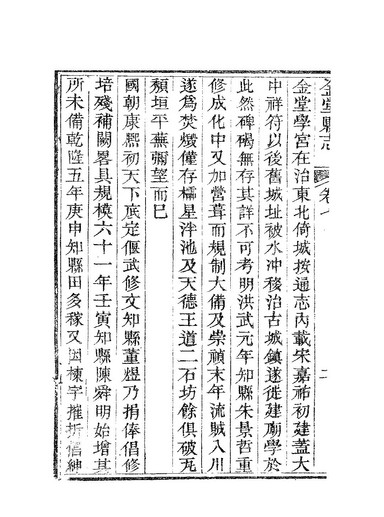 金堂縣志 卷七 二
金堂學宮在治東北倚城按通志內載宋嘉祐初建蓋大
中祥符以後舊城址被水沖移治古城鎮遂徙建廟學於
此然碑碣無存其詳不可考明洪武元年知縣朱景哲重
修成化中又加營葺而規制大備及崇禎末年流賊入川
遂為焚燬僅存櫺星泮池及天德王道二石坊餘俱破瓦
頹垣平蕪彌望而已
國朝康熙初天下底定偃武修文知縣董煜乃捐俸倡修
培殘補闕畧具規模六十一年壬寅知縣陳舜明始增其
所未備乾隆五年庚申知縣田多稼又因棟宇摧折倡紳